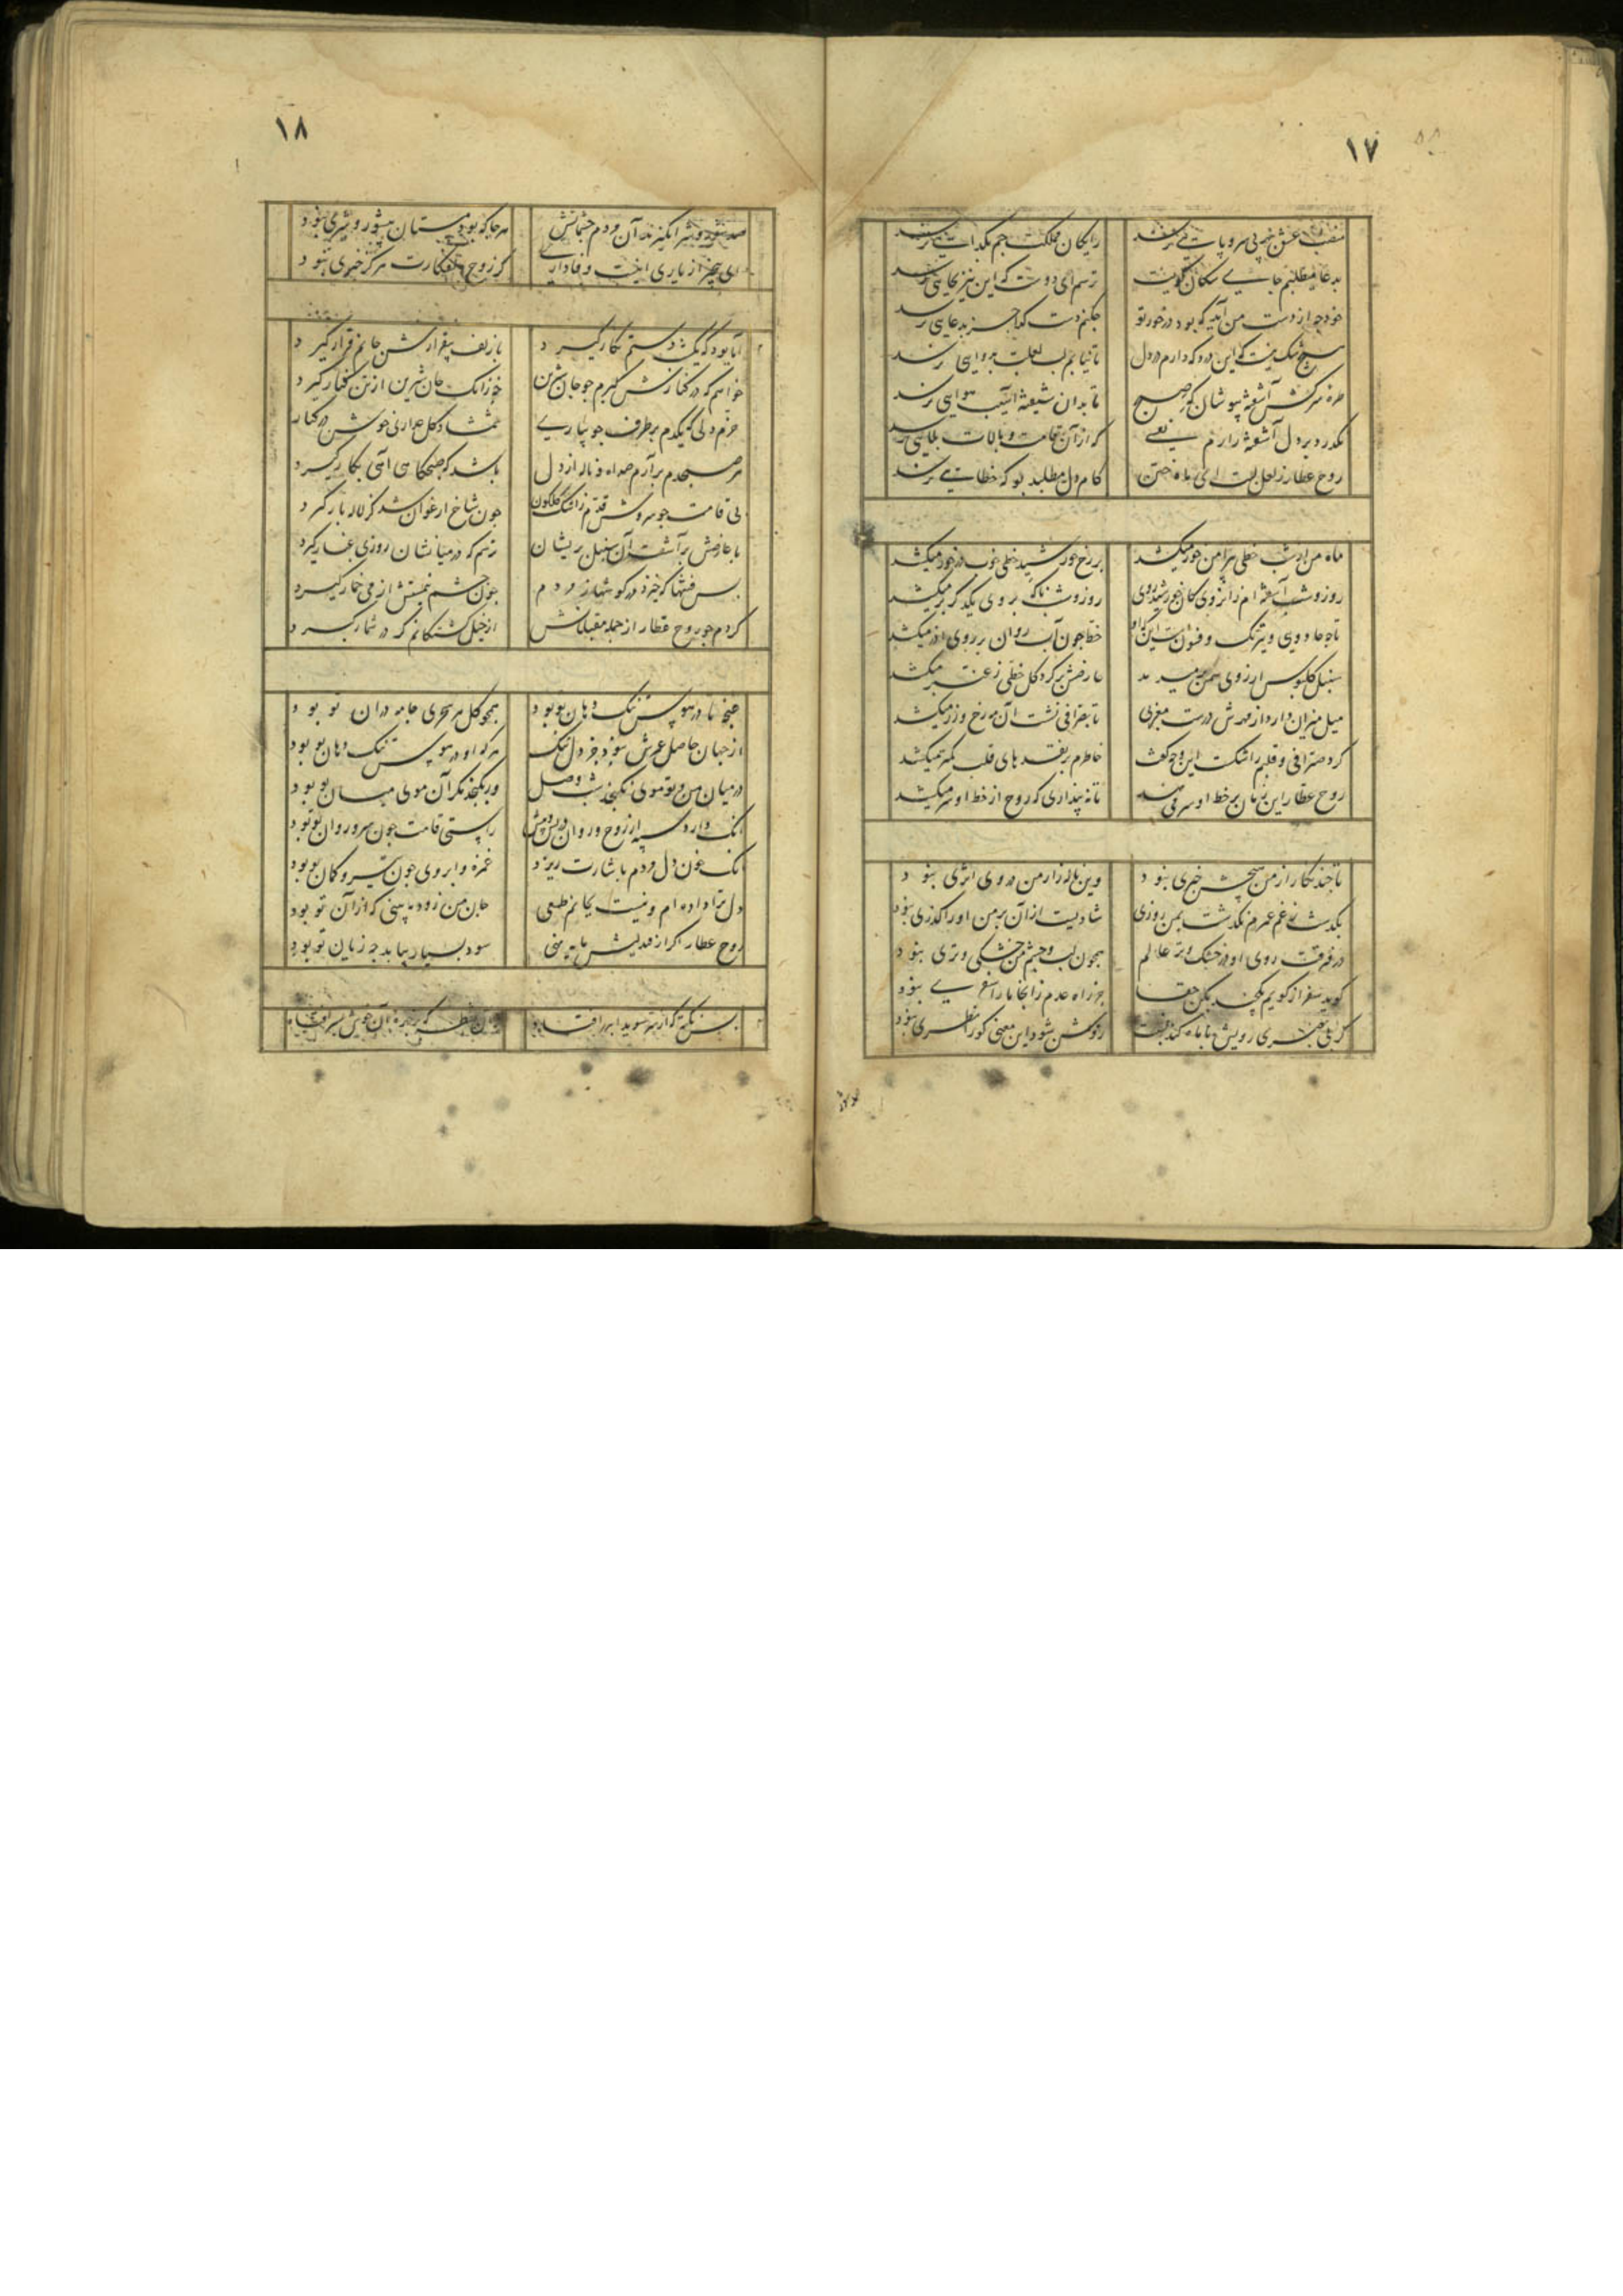 ۱۷
منصب عشق بهر بی سر و پایی نرسد
رایگان مملکت جم بکدایی نرسد
بدعا میطلبم جایی سکان کویت
ترسم ای دوست که این نیز بجایی نرسد
خود چه از دست من آید که بود در خور تو
چکنم دست کدا جز بدعایی نرسد
هیچ شک نیست که این درد که دارم در دل
تا نیابم لب لعلت بدوایی نرسد
طره سرکش آشفته بپوشان که
تا بدان شیفته آسیب هوایی نرسد
نکذرد بر دل آشفته زارم نفسی
که از آن قامت و بالات بلایی نرسد
روح عطار ز لعل لبت ای ماه ختن
کام دل میطلبد بو که خطایی نرسد
ماه من از شب خطی پیرامن خور میکشد
بر رخ خورشید خطی خوب در خور میکشد
روز و شب آشفته ام زانروی کان خورشید روی
روز و شب را بر روی یکدکر بر میکشد
تا چه جادویی و نیرنک و فسونست این که او
خط چون آب روان بر روی آذر میکشد
سنبل کلبوس از روی سمن بر میدمد
عارضش بر کرد کل خطی ز عنبر میکشد
میل میزان دارد از مهرش درست مغربی
تا بصرافی نشست آن مه رخ و زر میکشد
کرد صرافی و قلبم را شکست این وجه کفت
خاطرم بر نقدهای قلب کمتر میکشد
روح عطار این زمان بر خط او سر می نهد
تا نه پنداری که روح از خط او سر میکشد
تا چند نکار از من هیچش خبری نبود
وین ناله زار من در وی اثری نبود
بکذشت ز غم عمرم نکذشت بمن روزی
شادیست از آن بر من او را کذری نبود
در فرقت روی او در خشک و تر عالم
همچون لب و چشم من خشکی و تری نبود
کوید سفر از کویم یکچند بکن حقا
جز راه عدم زانجا ما را سفری نبود
کر بی بصری رویش با ماه کند نسبت
روشن شود این معنی کو را نظری نبود
۱۸
صد شور و شر انکیزند آن مردم چشمانش
هرجا که بود مستان بی شور و شری نبود
ای بیخبر از یاری اینست وفاداری
کز روح جکرخوارت هرکز خبری نبود
آیا بود که یکشب دستم نکار کیرد
با زلف بیقرارش جانم قرار کیرد
خواهم که در کنارش کیرم چو جان شیرین
جز زانک جان شیرین از تن کنار کیرد
خرم دلی که یکدم بر طرف جویباری
شمشاد کل عذاری خوش در کنار کیرد
هر صبحدم برآرم صد آه و ناله از دل
باشد که صبحکاهی آهی بکار کیرد
بی قامت چو سروش قدم ز اشک کلکون
چون شاخ ارغوان شد کز لاله بار کیرد
با عارضش برآشفت آن سنبل پریشان
ترسم که در میانشان روزی غبار کیرد
بس فتنها که خیزد در کوشها ز مردم
چون چشم نیمستش از می خمار کیرد
کردم چو روح عطار از جمله مقبلانش
از خیل کشتکانم کر در شمار کیرد
غنچه تا در هوس تنک دهان تو بود
همچو کل هر سحری جامه دران تو بود
از جهان حاصل عمرش نبود جز دل تنک
هر که او در هوس تنک دهان تو بود
در میان من و تو موی نکنجد شب وصل
ور بکنجد مکر آن موی میان تو بود
انک دارد سپه از روح و روان در پس و پیش
راستی قامت چون سرو روان تو بود
انک خون دل مردم باشارت ریزد
غمزه و ابروی چون تیر و کمان تو بود
دل ترا داده ام و نیست بجانم طمعی
جان من زود به بینی که از آن تو بود
روح عطار اکر از مهر لبش مایه نهی
سود بسیار بیابد چه زیان تو بود
بس نکته که از سر سویدا بدر افتاد